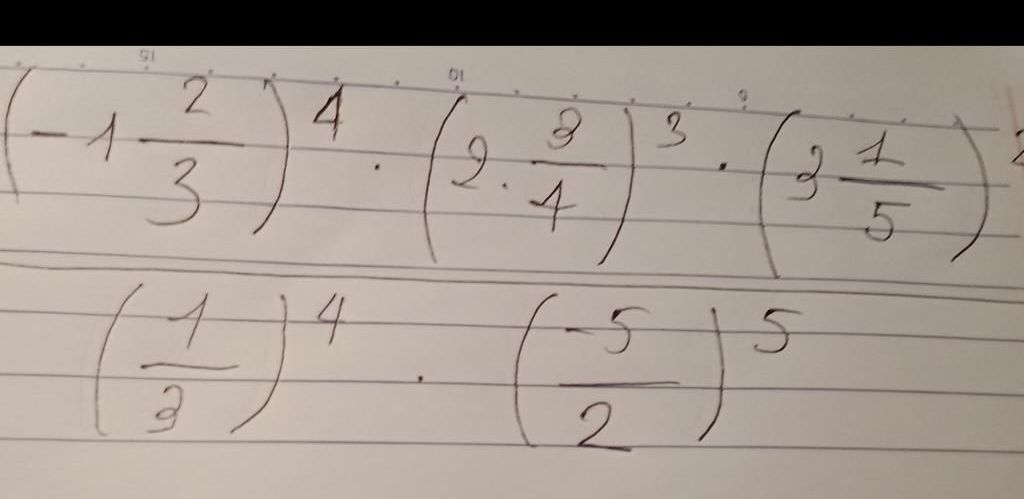 (-1 2/3)^4 · (2 · 3/4)^3 · (3 1/5)^2
(1/3)^4 · (-5/2)^5